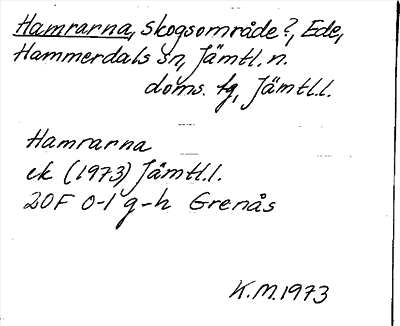 Hamrarna, skogsområde?, Ede,
Hammerdals sn, Jämtl. n.
doms. tg, Jämtl.l.
Hamrarna
ek (1973) Jämtl.l.
20F 0-1 g-h Grenås
K.M. 1973